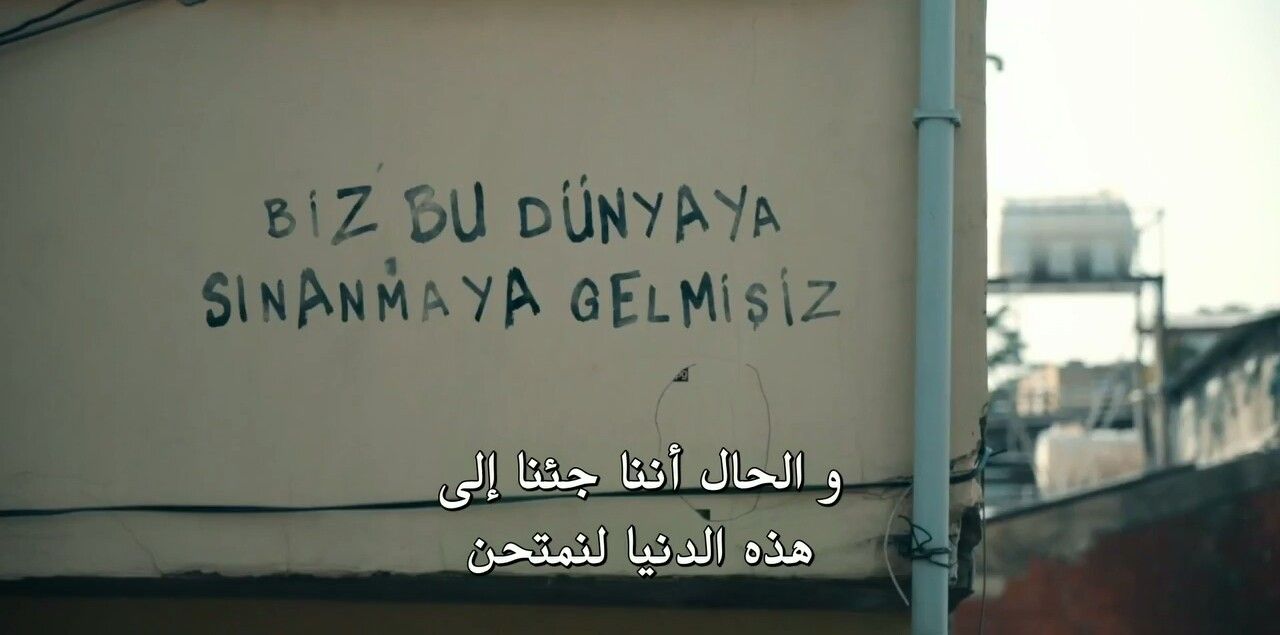 BİZ BU DÜNYAYA
SINANMAYA GELMİŞİZ
و الحال أننا جئنا إلى
هذه الدنيا لنمتحن